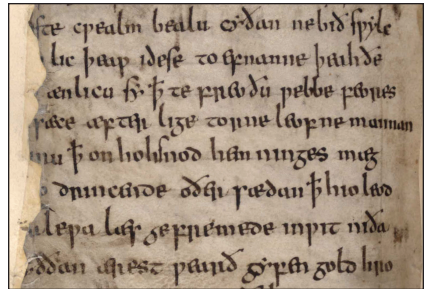 ste cƿealm bealu cyðan ne bið sƿylc
lic þeaƿ idese to efnanne þeah ðe
ænlicu sy ꝥ te freoðu ƿebbe feores
sæce æfter lige torne leofne mannan
ru ꝥ on hohsnod hem ninges mæg
drincende oðer sædan ꝥ hio leod
leƿa læs ge fremede inƿit niða
ððan ærest ƿearð gyfen gold hro